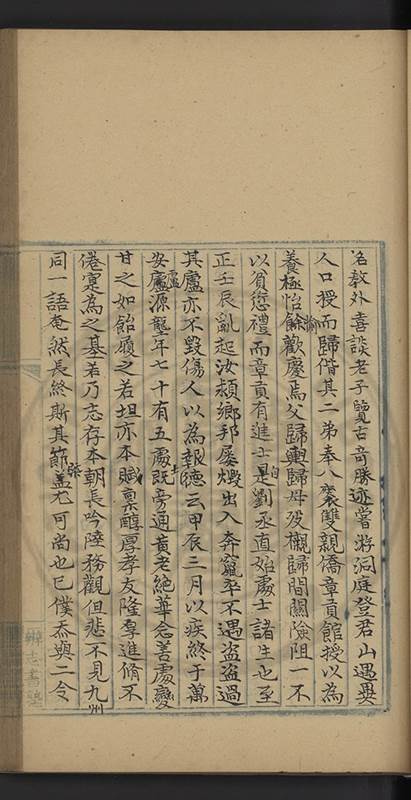 名教外喜談老子覽古奇勝迹嘗游洞庭登君山遇異
人口授而歸偕其二弟奉八袠雙親僑章貢館授以為
養極怡愉餘歡慶焉父歸輿歸母歿櫬歸間關險阻一不
以貧愆禮而章貢有進士自是劉丞直始處士諸生也至
正壬辰亂起汝潁鄉邦屢燬出入奔竄卒不遇盜盜過
其廬亦不毀傷人以為報德云甲辰三月以疾終于萬
安廬源壟年七十有五處士既旁通黃老絕葷念善處變
甘之如飴履之若坦亦本賦稟醇厚孝友隆厚進脩不
倦寔為之基若乃志存本朝長吟障務觀但悲不見九州
同一語奄然長終斯其節蓋尤可尚也已僕忝與二令
辨志書塾